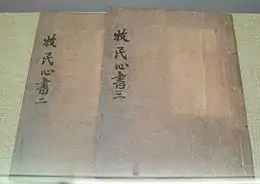 牧民心書二
牧民心書三